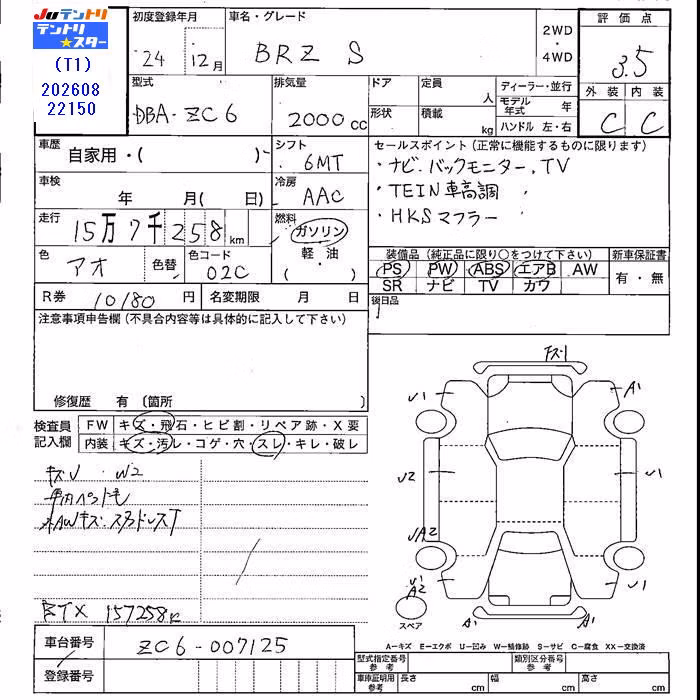 JUテントリ
テントリ
★スター
(T1)
202608
22150
初度登録年月
24 12月
車名・グレード
BRZ S
2WD
・
4WD
評価点
3.5
外装 内装
C C
型式
DBA-ZC6
排気量
2000cc
ドア
形状
定員 人
積載 kg
ディーラー・並行
モデル年式 年
ハンドル 左・右
車歴
自家用・( )
シフト
6MT
セールスポイント(正常に機能するものに限ります)
・ナビ.バックモニター.TV
・TEIN車高調
・HKSマフラー
車検
年 月( 日)
冷房
AAC
走行
15万7千258km
燃料
ガソリン
軽・油
( )
色
アオ
色替
色コード
02C
装備品(純正品に限り○をつけて下さい)
新車保証書
PS PW ABS エアB AW
SR ナビ TV カワ
有・無
R券 10180円
名変期限 月 日
後日品
注意事項申告欄(不具合内容等は具体的に記入して下さい)
修復歴 有(箇所 )
検査員
記入欄
FW キズ・飛石・ヒビ割・リペア跡・X要
内装 キズ・汚レ・コゲ・穴・スレ・キレ・破レ
キズU W2
車内ペット毛
AWキズ
BTX 157258K
U1
A1
U2
U1
UA2
U1
A2
U1
A1
A1
スペア
A-キズ E-エクボ U-凹み W-補修跡 S-サビ C-腐食 XX-交換済
車台番号
ZC6-007125
登録番号
型式指定番号
参考
類別区分番号
参考
車庫証明用
参考
長さ cm
幅 cm
高さ cm